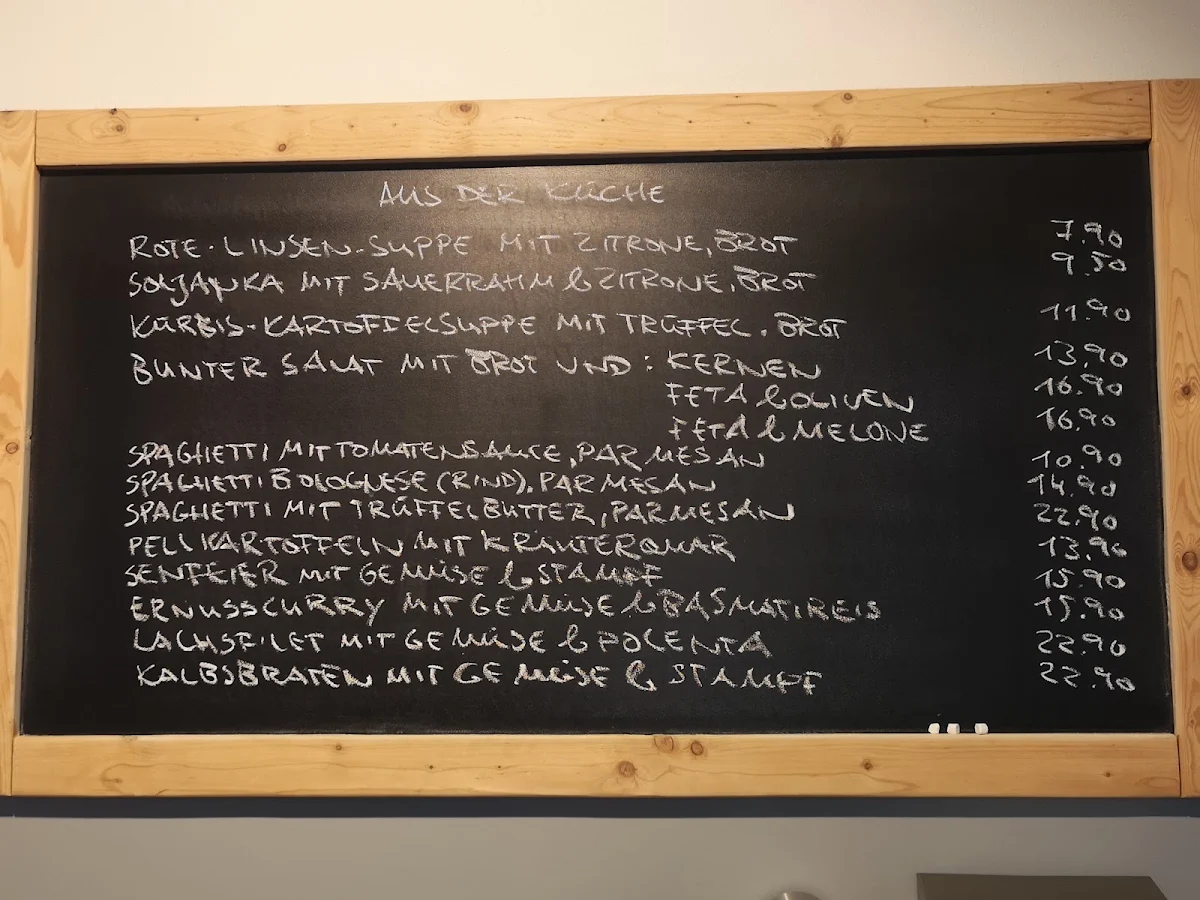 AUS DER KÜCHE
ROTE-LINSEN-SUPPE MIT ZITRONE, BROT 7.90
SOLJANKA MIT SAUERRAHM & ZITRONE, BROT 9.50
KÜRBIS-KARTOFFELSUPPE MIT TRÜFFEL, BROT 11.90
BUNTER SALAT MIT BROT UND: KERNEN 13,90
FETA & OLIVEN 16.90
FETA & MELONE 16.90
SPAGHETTI MIT TOMATENSAUCE, PARMESAN 10.90
SPAGHETTI BOLOGNESE (RIND), PARMESAN 14.90
SPAGHETTI MIT TRÜFFELBUTTER, PARMESAN 22.90
PELLKARTOFFELN MIT KRÄUTERQUARK 13.90
SENFEIER MIT GEMÜSE & STAMPF 15.90
ERNUSSCURRY MIT GEMÜSE & BASMATIREIS 15.90
LACHSFILET MIT GEMÜSE & POLENTA 22.90
KALBSBRATEN MIT GEMÜSE & STAMPF 22.90